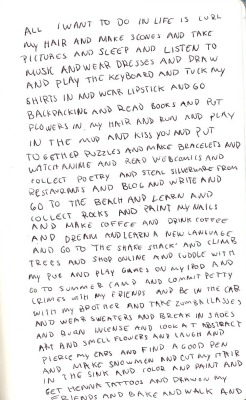 ALL I WANT TO DO IN LIFE IS CURL
MY HAIR AND MAKE SCONES AND TAKE
PICTURES AND SLEEP AND LISTEN TO
MUSIC AND WEAR DRESSES AND DRAW
AND PLAY THE KEYBOARD AND TUCK MY
SHIRTS IN AND WEAR LIPSTICK AND GO
BACKPACKING AND READ BOOKS AND PUT
FLOWERS IN MY HAIR AND RUN AND PLAY
IN THE MUD AND KISS YOU AND PUT
TOGETHER PUZZLES AND MAKE BRACELETS AND
WATCH ANIME AND READ WEBCOMICS AND
COLLECT POETRY AND STEAL SILVERWARE FROM
RESTAURANTS AND BLOG AND WRITE AND
GO TO THE BEACH AND LEARN AND
COLLECT ROCKS AND PAINT MY NAILS
AND MAKE COFFEE AND DRINK COFFEE
AND DREAM AND LEARN A NEW LANGUAGE
AND GO TO THE SHAKE SHACK AND CLIMB
TREES AND SHOP ONLINE AND CUDDLE WITH
MY PUG AND PLAY GAMES ON MY IPOD AND
GO TO SUMMER CAMP AND COMMIT PETTY
CRIMES WITH MY FRIENDS AND BE IN THE CAR
WITH MY BROTHER AND TAKE ZUMBA CLASSES
AND WEAR SWEATERS AND BREAK IN SHOES
AND BURN INCENSE AND LOOK AT ABSTRACT
ART AND SMELL FLOWERS AND LAUGH AND
PIERCE MY EARS AND FIND A GOOD PEN
AND MAKE SNOWMEN AND CUT MY HAIR
IN THE SINK AND COLOR AND PAINT AND
GET HENNA TATTOOS AND DRAW ON MY
FRIENDS AND BAKE AND WALK AND